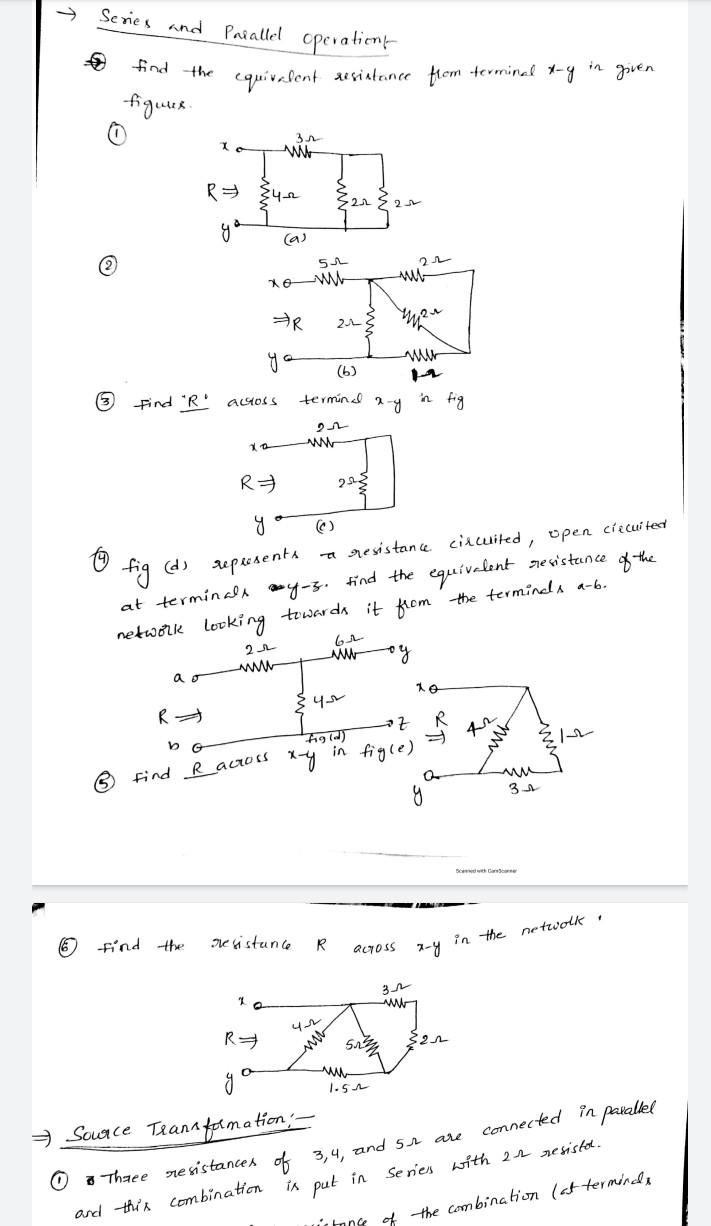 → Series and Parallel operations
find the equivalent resistance from terminal x-y in given
figures.
①
3Ω
x
R ⇒ 4Ω 2Ω 2Ω
y
(a)
②
5Ω 2Ω
x
⇒R 2Ω 2Ω
y
(b) 1Ω
③ Find 'R' across terminal x-y in fig
2Ω
x
R ⇒ 2Ω
y
(c)
④ fig (d) represents a resistance circuited, open circuited
at terminals y-z. find the equivalent resistance of the
network looking towards it from the terminals a-b.
2Ω 6Ω
a y
4Ω x
R ⇒
b fig(d) z R ⇒ 4Ω 1Ω
⑤ Find R across x-y in fig(e)
y 3Ω
Scanned with CamScanner
⑥ Find the resistance R across x-y in the network.
3Ω
x
4Ω
R ⇒ 5Ω 2Ω
y
1.5Ω
⇒ Source Transformation:-
① Three resistances of 3,4, and 5Ω are connected in parallel
and this combination is put in series with 2Ω resistor.
of the combination (at terminals